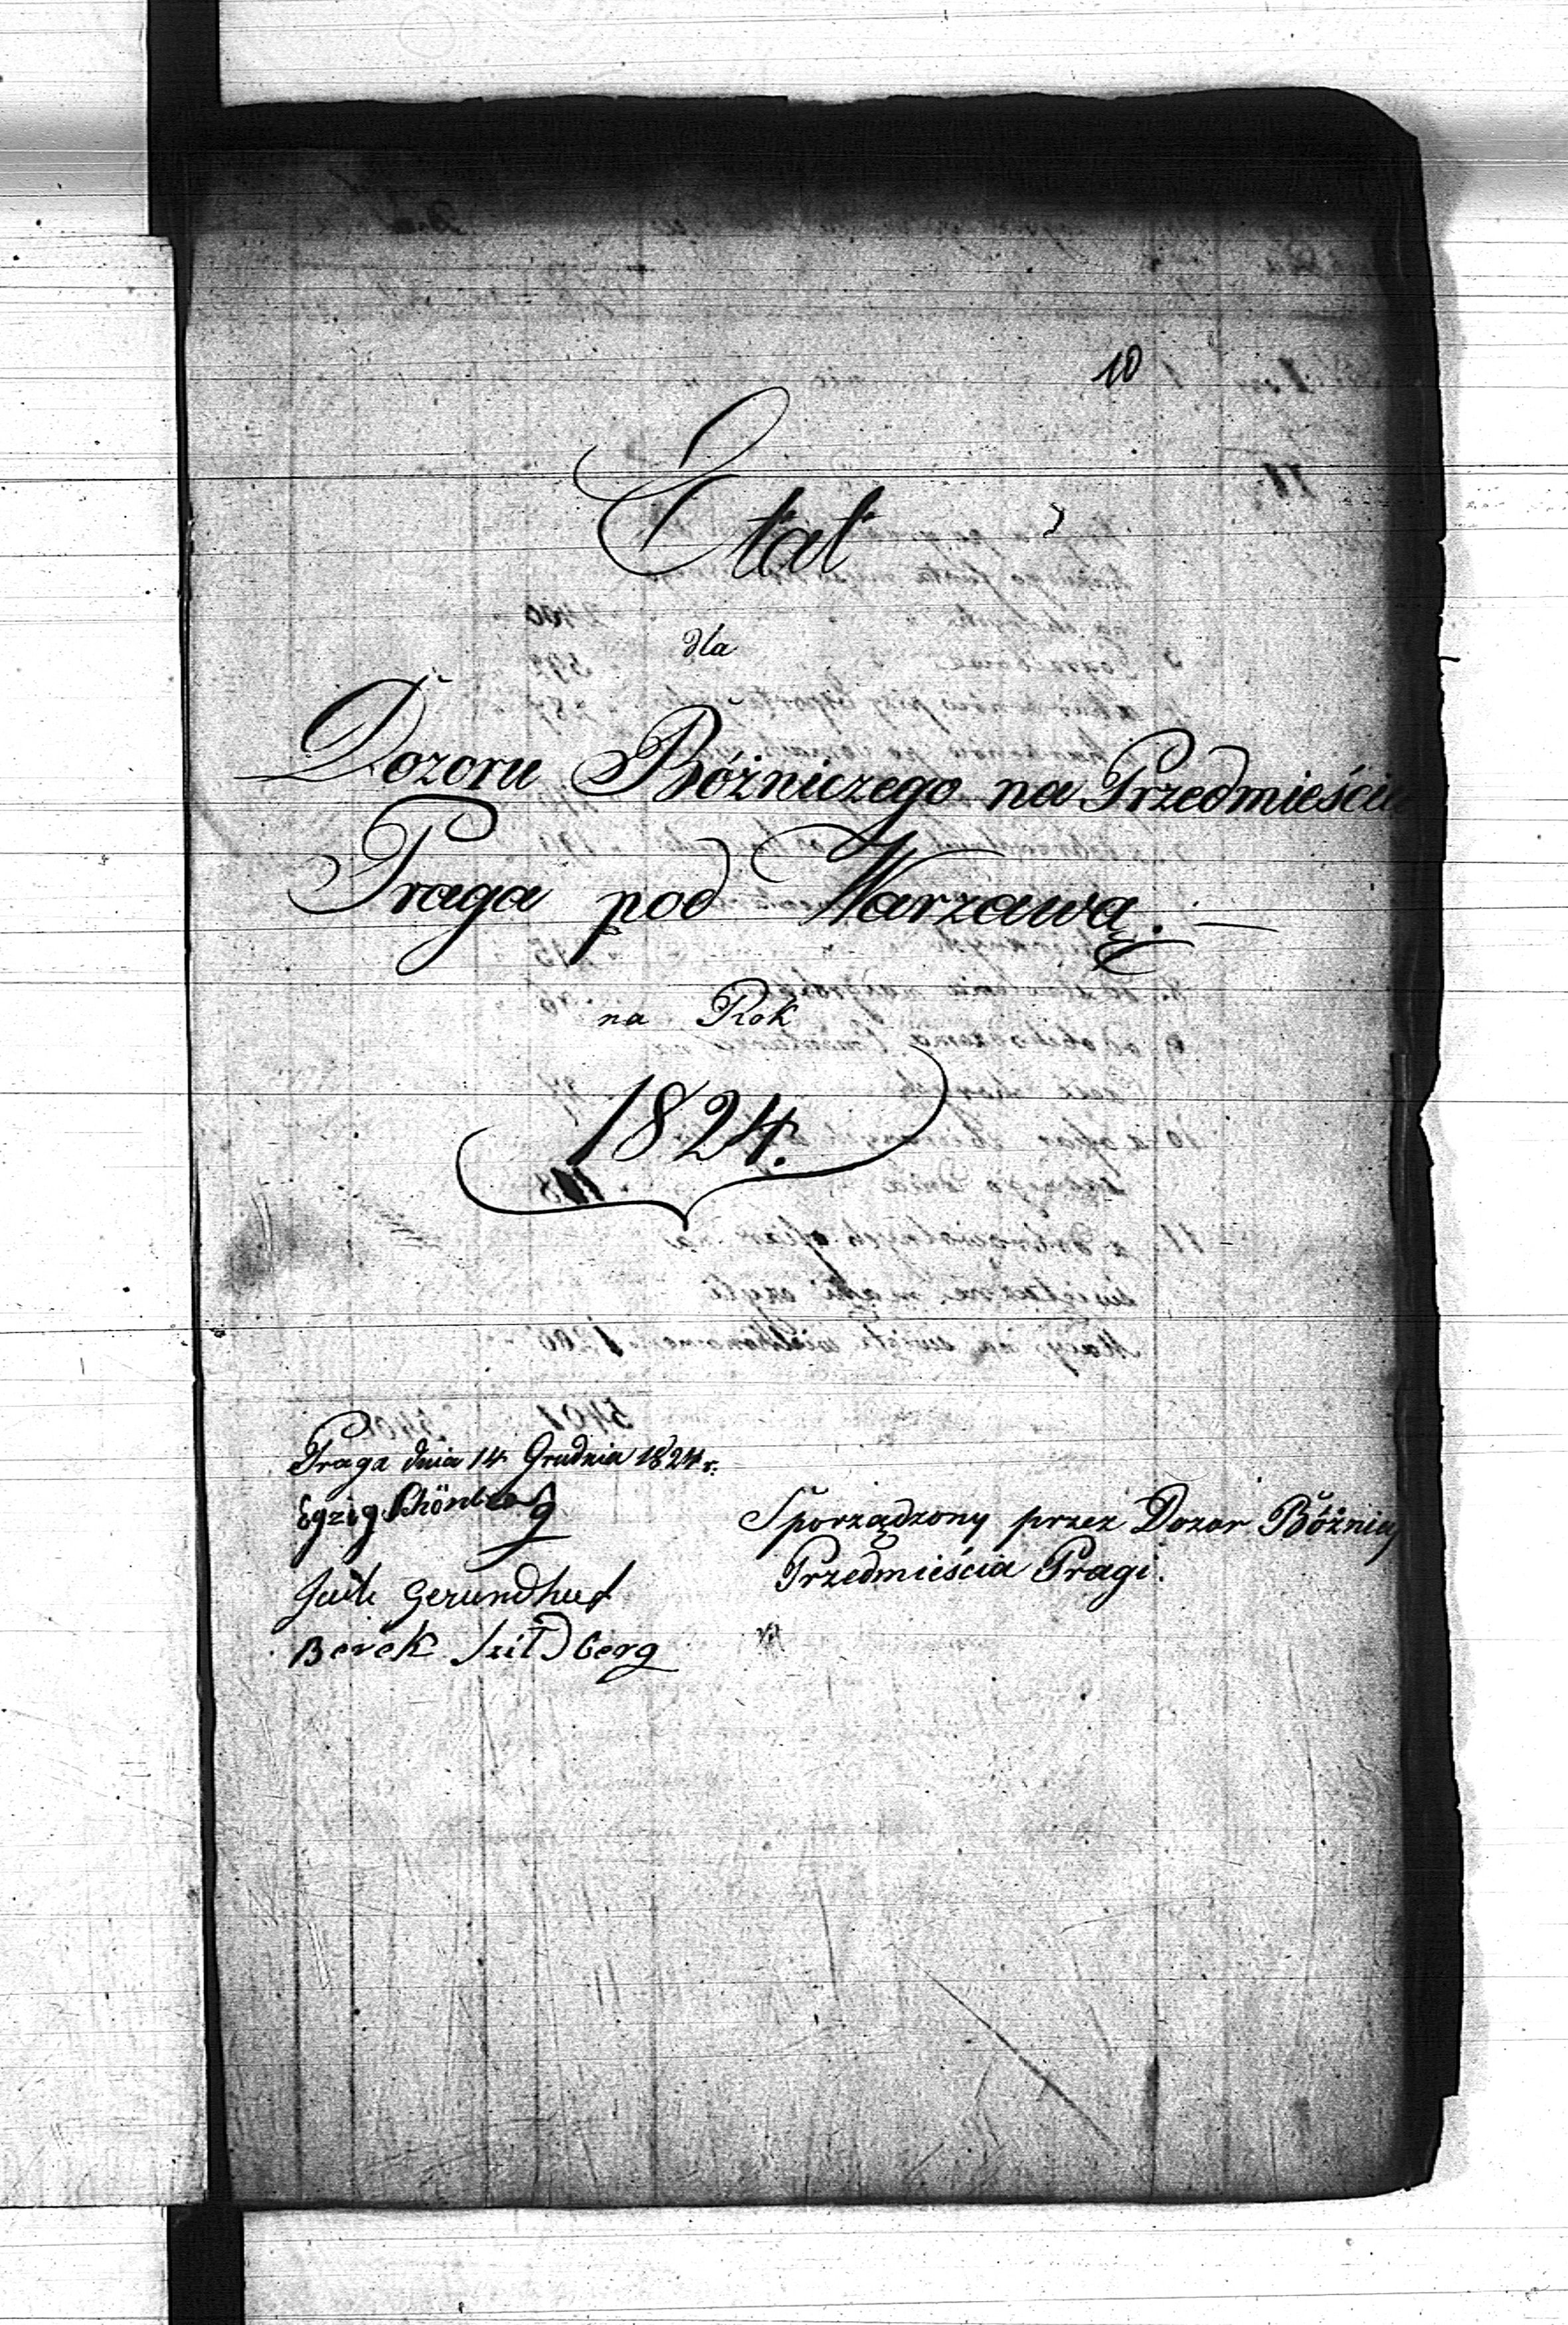 10
Etat
dla
Dozoru Bóżniczego na Przedmieściu
Praga pod Warzawą.
na Rok
1824.
Praga dnia 14 Grudnia 1824 r.
Egzig Schönberg
Sporządzony przez Dozor Bóżnicy
Przedmieścia Pragi.
Gerundhut
Berek Szildberg